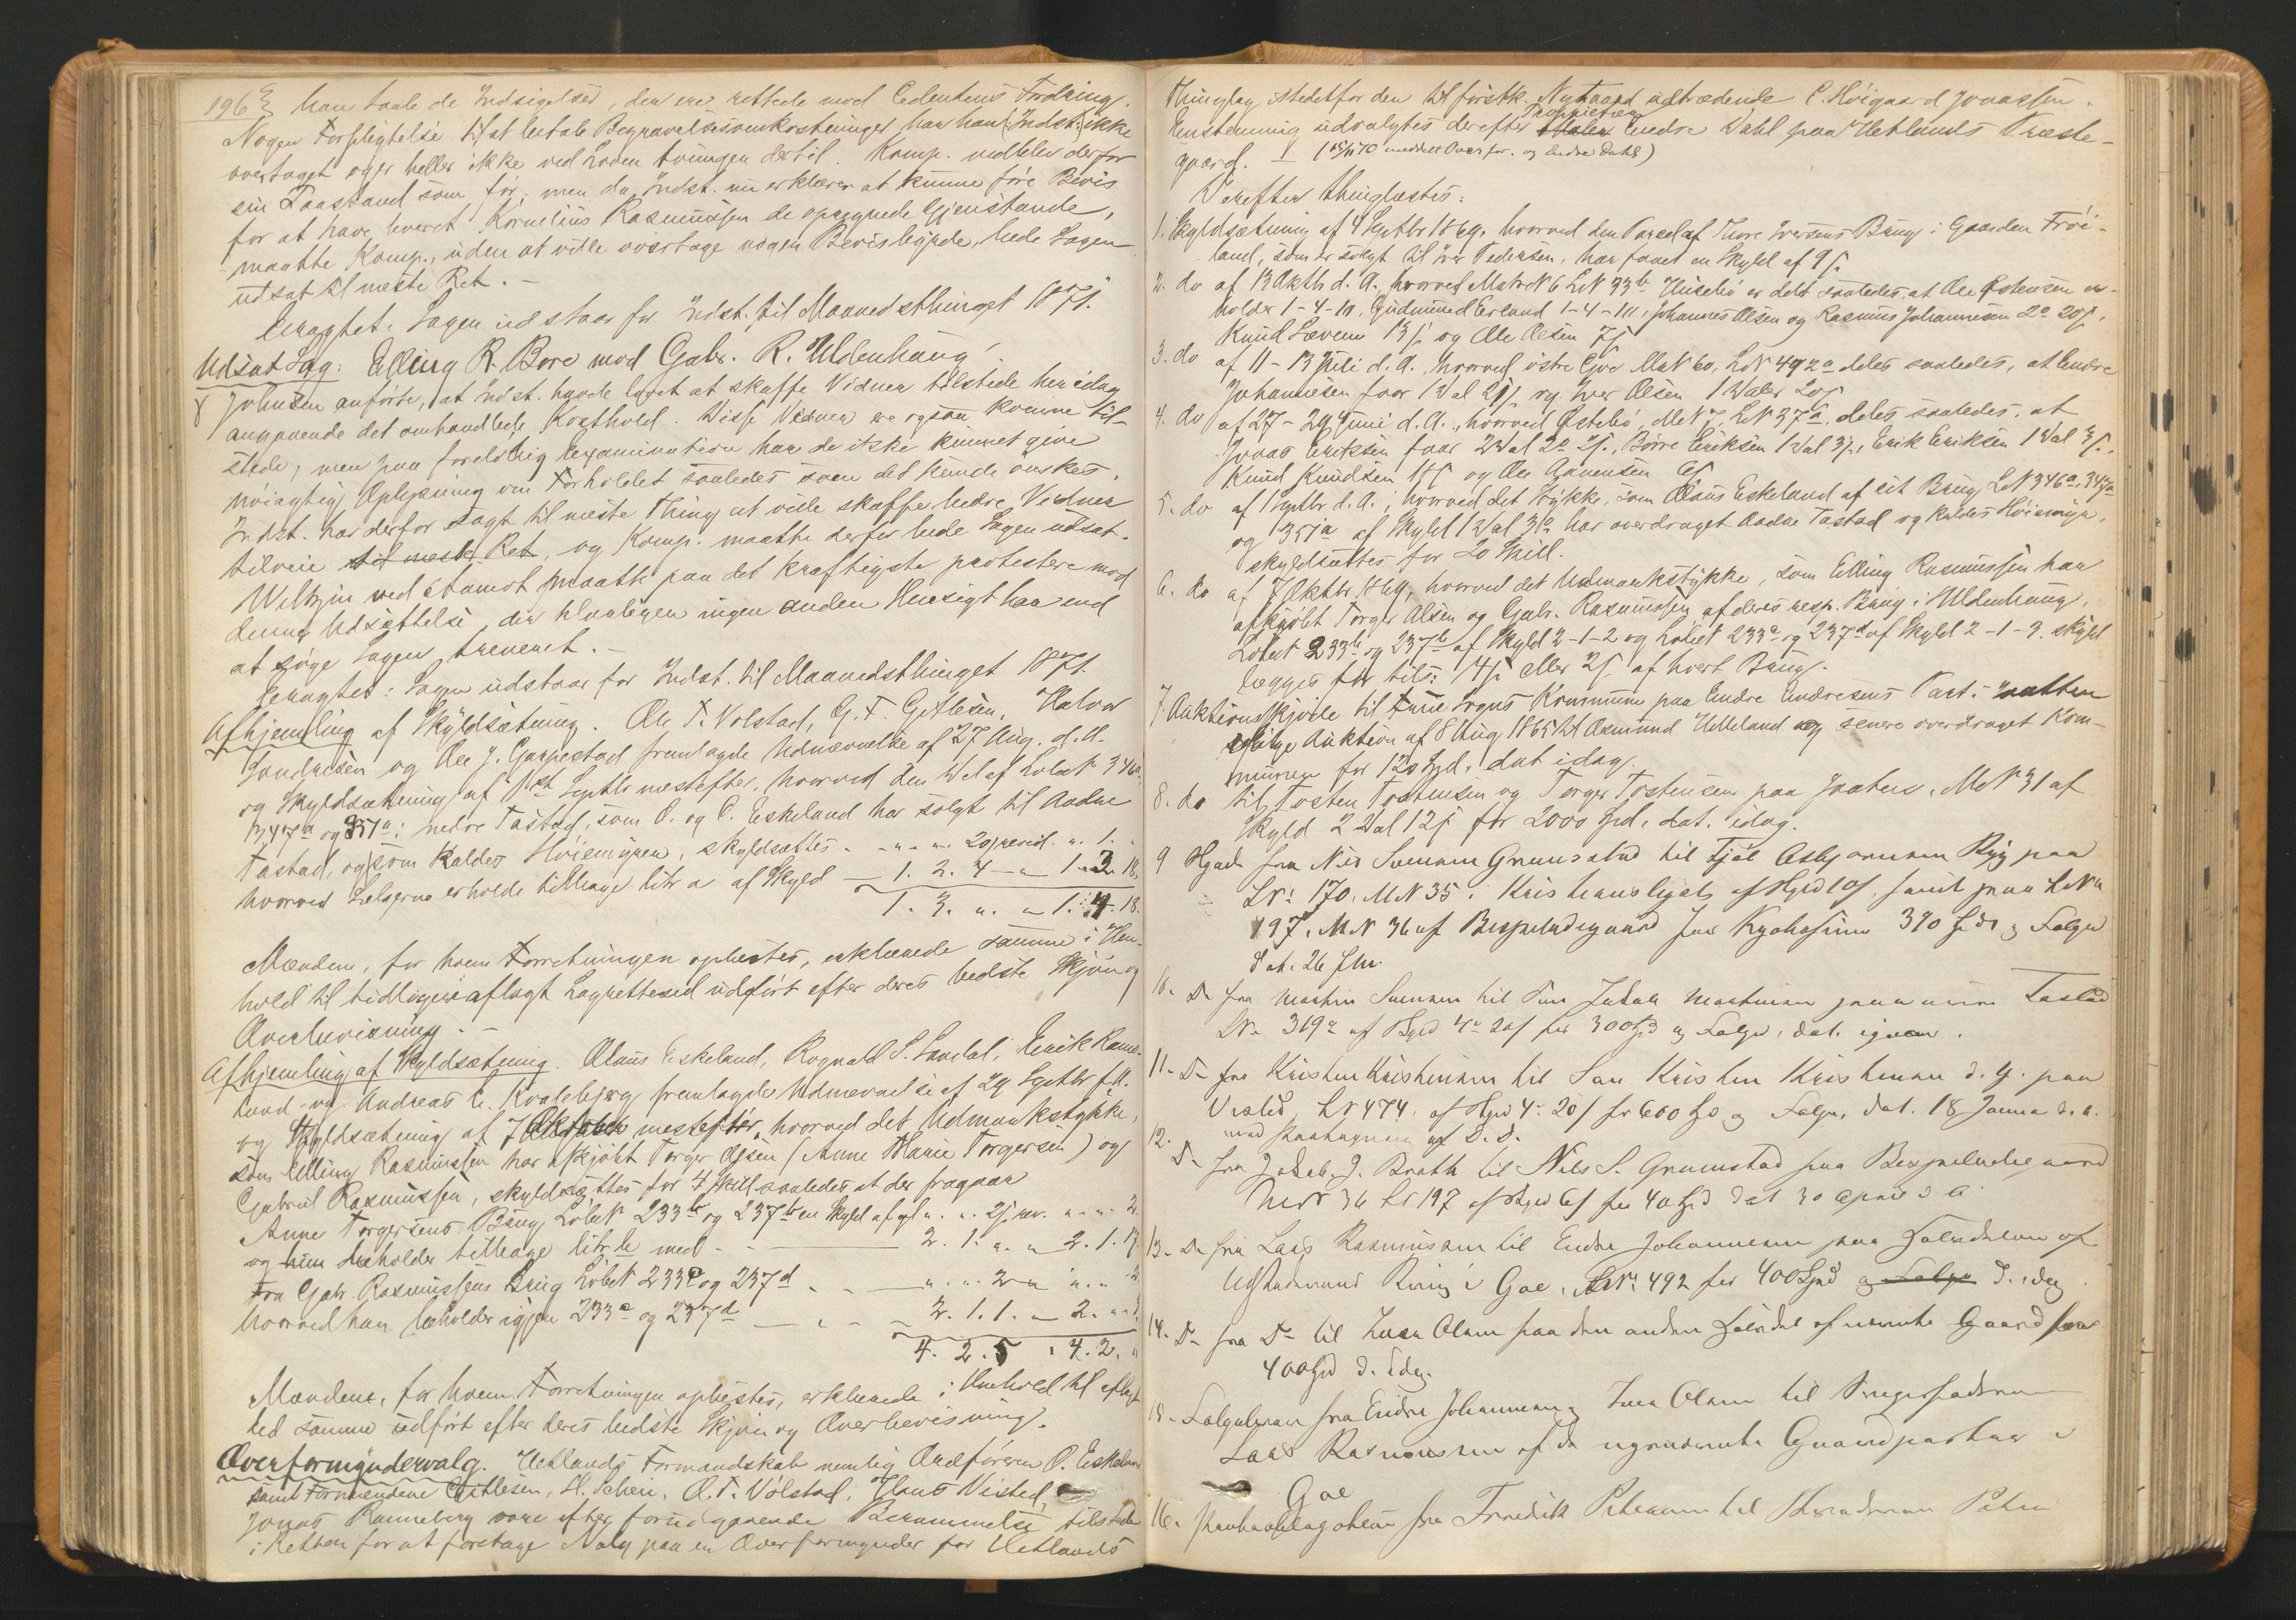 196
han taale de Indsigelser, der ere rettede mod Cedentens Fordring.
Nogen Forpligtelse til at betale Begravelsesomkostninger har han (Indst.) ikke
overtaget og er heller ikke ved Loven tvungen dertil. Komp. vedblev derfor
sin Paastand som før; men da Indst. nu erklærer at kunne føre Bevis
for at have leveret Kornelius Rasmussen de opregnede Gjenstande,
maatte Komp., uden at ville overtage nogen Bevisbyrde, bede Sagen
udsat til næste Ret. -
Eragtet: Sagen udstaar for Indst. til Maanedsthinget 1871.
Udsat Sag: Elling R. Bore mod Gabr. R. Uldenhaug.
Johnsen anførte, at Indst. havde lovet at skaffe Vidner tilstede her idag
angaaende det omhandlede Kosthold. Disse Vidner ere ogsaa komne til-
stede, men paa foreløbig Examination har de ikke kunnet give
nøiagtig Oplysning om Forholdet saaledes som det kunde ønskes.
Indst. har derfor sagt til næste Thing at ville skaffe bedre Vidner
tilveie til næste Ret, og Komp. maatte derfor bede Sagen udsat.
Weltzin ved stamot maatte paa det kraftigste protestere mod
denne Udsættelse, der blanligen ingen anden Hensigt har end
at søge Sagen treneret. -
Eragtet: Sagen udstaar for Indst. til Maanedsthinget 1871.
Afhjemling af Skyldsætning. Ole T. Volstad, G. T. Gitlesen, Halvor
Gundersen og Ole J. Garpestad fremlagde Udnævnelse af 27 Aug. d. A.
og Skyldsætning af 1st Septbr næstefter, hvorved den Del af Løbnt 346a
347a og 351a i nedre Tastad, som O. og O. Eskeland har solgt til Aadne
Tastad, og som kaldes Høiemyren, skyldsættes - " " " 20 " 1. "
hvorved Sælgerne erholde tilbage litr a af Skyld - 1. 2. 4 - " 1. 3. 18.
1. 3. " . " 1. 4. 18.
Mændene, for hvem Forretningen oplæstes, erklærede samme i Hen-
hold til tidligere aflagt Lagretteed udført efter deres bedste Skjøn og
Overbevisning. -
Afhjemling af Skyldsætning. Olaus Eskeland, Rognald S. Sandal, Enik Rams-
land og Andreas E. Kvalebjerg fremlagde Udnævnelse af 29 Septbr f. A.
og Skyldsætning af 7 Oktober næstefter, hvorved det Udmarkstykke,
som Elling Rasmussen har afkjøbt Torger Olsen (Anne Marie Torgersen) og
Gabriel Rasmussen, skyldsættes for 4 Skill saaledes at der fragaar
Anne Torgersens Brug Løbnt 233b og 237b en Skyld af gl " . " 2 " " . " 2.
og hun beholder tilbage litr b med - - 2. 1. " . " 2. 1. 17.
Fra Gabr. Rasmussens Brug Løbnt 233c og 237d - - " . " 2 " " . " . 2.
hvorved han beholder igjen 233a og 237d - - - 2. 1. 1. - 2. " . 3.
4. 2. 5 : 4. 2. "
Mændene, for hvem Forretningen oplæstes, erklærede i Henhold til aflagt
Ed samme udført efter deres bedste Skjøn og Overbevisning.
Overformyndervalg. Hetlands Formandskab nemlig Ordføreren O. Eskeland
samt Formændene Gitlesen, H. Scheie, O. T. Volstad, Hans Visted,
Jonas Ranneberg vare efter forudgaaende Berammelse tilstede
i Retten for at foretage Valg paa en Overformynder for Hetlands
Thinglag istedetfor den til førstk. Nytaard udtrædende C. Høigaard Jonassen.
Enstemmig udvalgtes derefter Proprietær Maler Endre Dahl paa Hetlands Præste-
gaard. - (15/11 70 meddelt Overfor. og Endre Dahl)
Derefter thinglæstes:
1. Skyldsætning af 4 Septbr 1869, hvorved den Parcel af Thore Iversens Brug i Gaarden Frøi-
land, som er solgt til Iver Pedersen, har faaet en Skyld af 9 ſ.
2. do af 13 Oktbr d. A. hvorved Matr. N 6 LN 33b Huisebø er delt saaledes, at Ole Østensen er-
holder 1-4-10, Gudmund Erland 1-4-10, Johannes Olsen og Rasmus Johannesen 2a 20 ſ,
Knud Sævene 13 ſ og Ole Olsen 7 ſ
3. do af 11-13 Juli d. A. hvorved østre Goe MN 60, LN 492a deles saaledes, at Endre
Johannesen faar 1 Dal 20 ſ og Iver Olsen 1 Daler 20 ſ
4. do af 27-29 Juni d. A., hvorved Østebø, MN 7, LN 37a deles saaledes, at
Jonas Eriksen faar 2 Dal 2a 2 ſ, Børre Eriksen 1 Dal 3 ſ, Erik Eriksen 1 Dal 3 ſ,
Knud Knudsen 1 ſ og Ole Aanensen 6 ſ
5. do af 1 Septbr d. A.; hvorved det Stykke, som Olaus Eskeland af sit Brug LN 346a, 347a
og 351a af Skyld 1 Dal 3a har overdraget Aadne Tastad og kaldes Høiemyr,
skyldsættes for 20 Skill.
6. do af 7 Oktbr 1869, hvorved det Udmarkstykke, som Elling Rasmussen har
afkjøbt Torger Olsen og Gabr. Rasmussen af deres resp. Brug i Uldenhaug,
Løbnt 233b og 237b af Skyld 2-1-2 og Løbnt 233a og 237d af Skyld 2-1-3. skyld
lægges for tils: 4 ſ eller 2 ſ af hvert Brug.
7. Auktionsskjøde til Fuie Sogns Kommune paa Endre Endresens Part i
ifølge Auktion af 8 Aug 1865 til Asmund Helleland og senere overdraget Kom-
munen for 120 Spd. dat idag.
8. do til Tosten Tostensen og Torger Tostensen paa Jaaten, MN 31 af
Skyld 2 Dal 12 ſ for 2000 Spd. dat. idag.
9 Skjøde fra Nils Svensen Grumstad til Tjøl Asbjørnsen Ryg paa
LN: 170, MN 35 i Kristiansligals af Skyld 10 ſ samt paa LNo
197, MN 36 af Bispeladegaard for Kjøbesum 390 Spd og Følger
dat. 26
10. Do fra Martin Svensen til Søn Jakob Martinsen paa Tastad
LN 319a af Skyld 4a 20 ſ for 300 Spd og Følger, dat. igaar.
11. Do fra Kristen Kristensen til Søn Kristen Kristensen d. y. paa
Visted, LN 474. af Skyld 4a 20 ſ for 600 Spd og Følger, dat. 18 Januar d. A.
med Paategning af D. D.
12. Do fra Jakob J. Brath til Nils S. Grumstad paa Bispeladegaard
MN 36 LN 197 af Skyld 6 ſ for 40 Spd dat 30 April d A.
13. Do fra Lars Rasmussen til Endre Johannesen paa Halvdelen af
Udstederens Brug i Goe, LNo 492 for 400 Spd og Følger d. idag.
14. Do fra Do til Iver Olsen paa den anden Halvdel af nævnte Gaard for
400 Spd d. idag.
15. Følgebrev fra Endre Johannesen og Iver Olsen til Svigerfaderen
Lars Rasmussen af de nysnævnte Gaardparter i
Goe
16. fra Fredrik Petersen til Peter